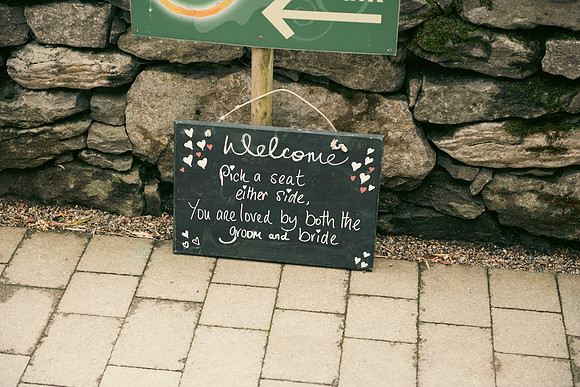 Welcome
Pick a seat
either side,
You are loved by both the
groom and bride